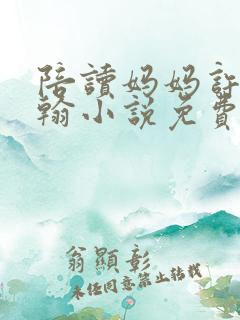 陪讀妈妈許
翰小説免費
翁顯彰
未经同意禁止转载